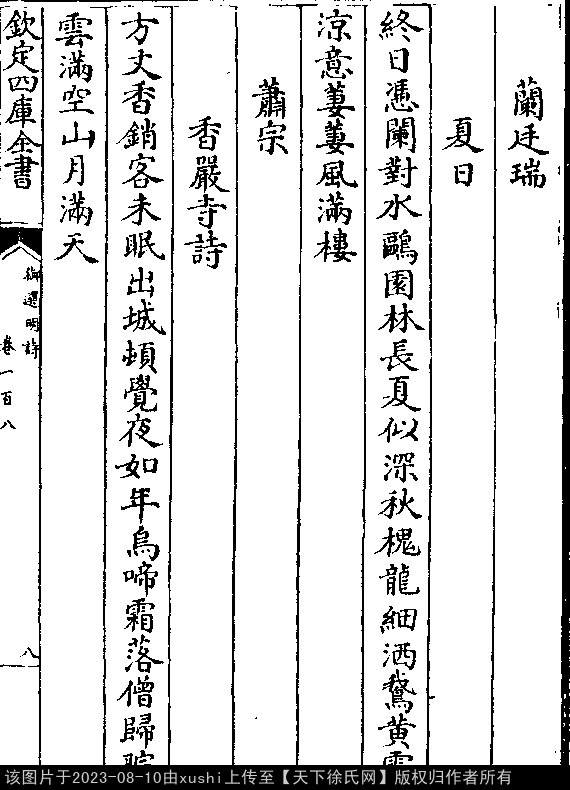 蘭廷瑞
夏日
終日憑闌對水鷗園林長夏似深秋槐龍細洒鵞黄雪
涼意萋萋風滿樓
蕭宗
香嚴寺詩
方丈香銷客未眠出城頓覺夜如年烏啼霜落僧歸
雲滿空山月滿天
欽定四庫全書
御選明詩
卷一百八
八
该图片于2023-08-10由xushi上传至【天下徐氏网】版权归作者所有